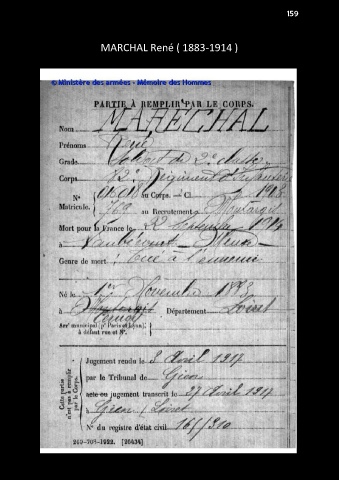 159
MARCHAL René ( 1883-1914 )
© Ministère des armées - Mémoire des Hommes
PARTIE À REMPLIR PAR LE CORPS.
Nom MARECHAL
Prénoms René
Grade Soldat de 2e classe
Corps Régiment d'Infanterie
N° au Corps. — Cl
Matricule. 769 au Recrutement Montargis
Mort pour la France le 22 Septembre 1914
à Meuse
Genre de mort Tué à l'ennemi
Né le 1er Novembre 1883
à Département Loiret
Arrt municipal (pr Paris et Lyon),
à défaut rue et N°.
Cette partie
n'est pas à remplir
par le Corps.
Jugement rendu le 3 Avril 1917
par le Tribunal de Gien
acte ou jugement transcrit le 27 Avril 1917
à Gien (Loiret
N° du registre d'état civil 165/310
269-708-1922. [26434]